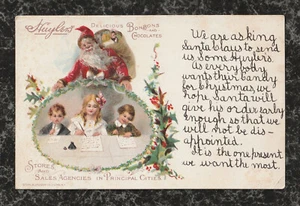 Huyler's
DELICIOUS BONBONS
AND
CHOCOLATES
We are asking
Santa Claus to send
us some Huylers.
As everybody
wants their candy
for Christmas we
hope Santa will
give his order early
enough so that we
will not be dis-
appointed.
It is the one present
we want the most.
STORES
AND
SALES AGENCIES IN PRINCIPAL CITIES